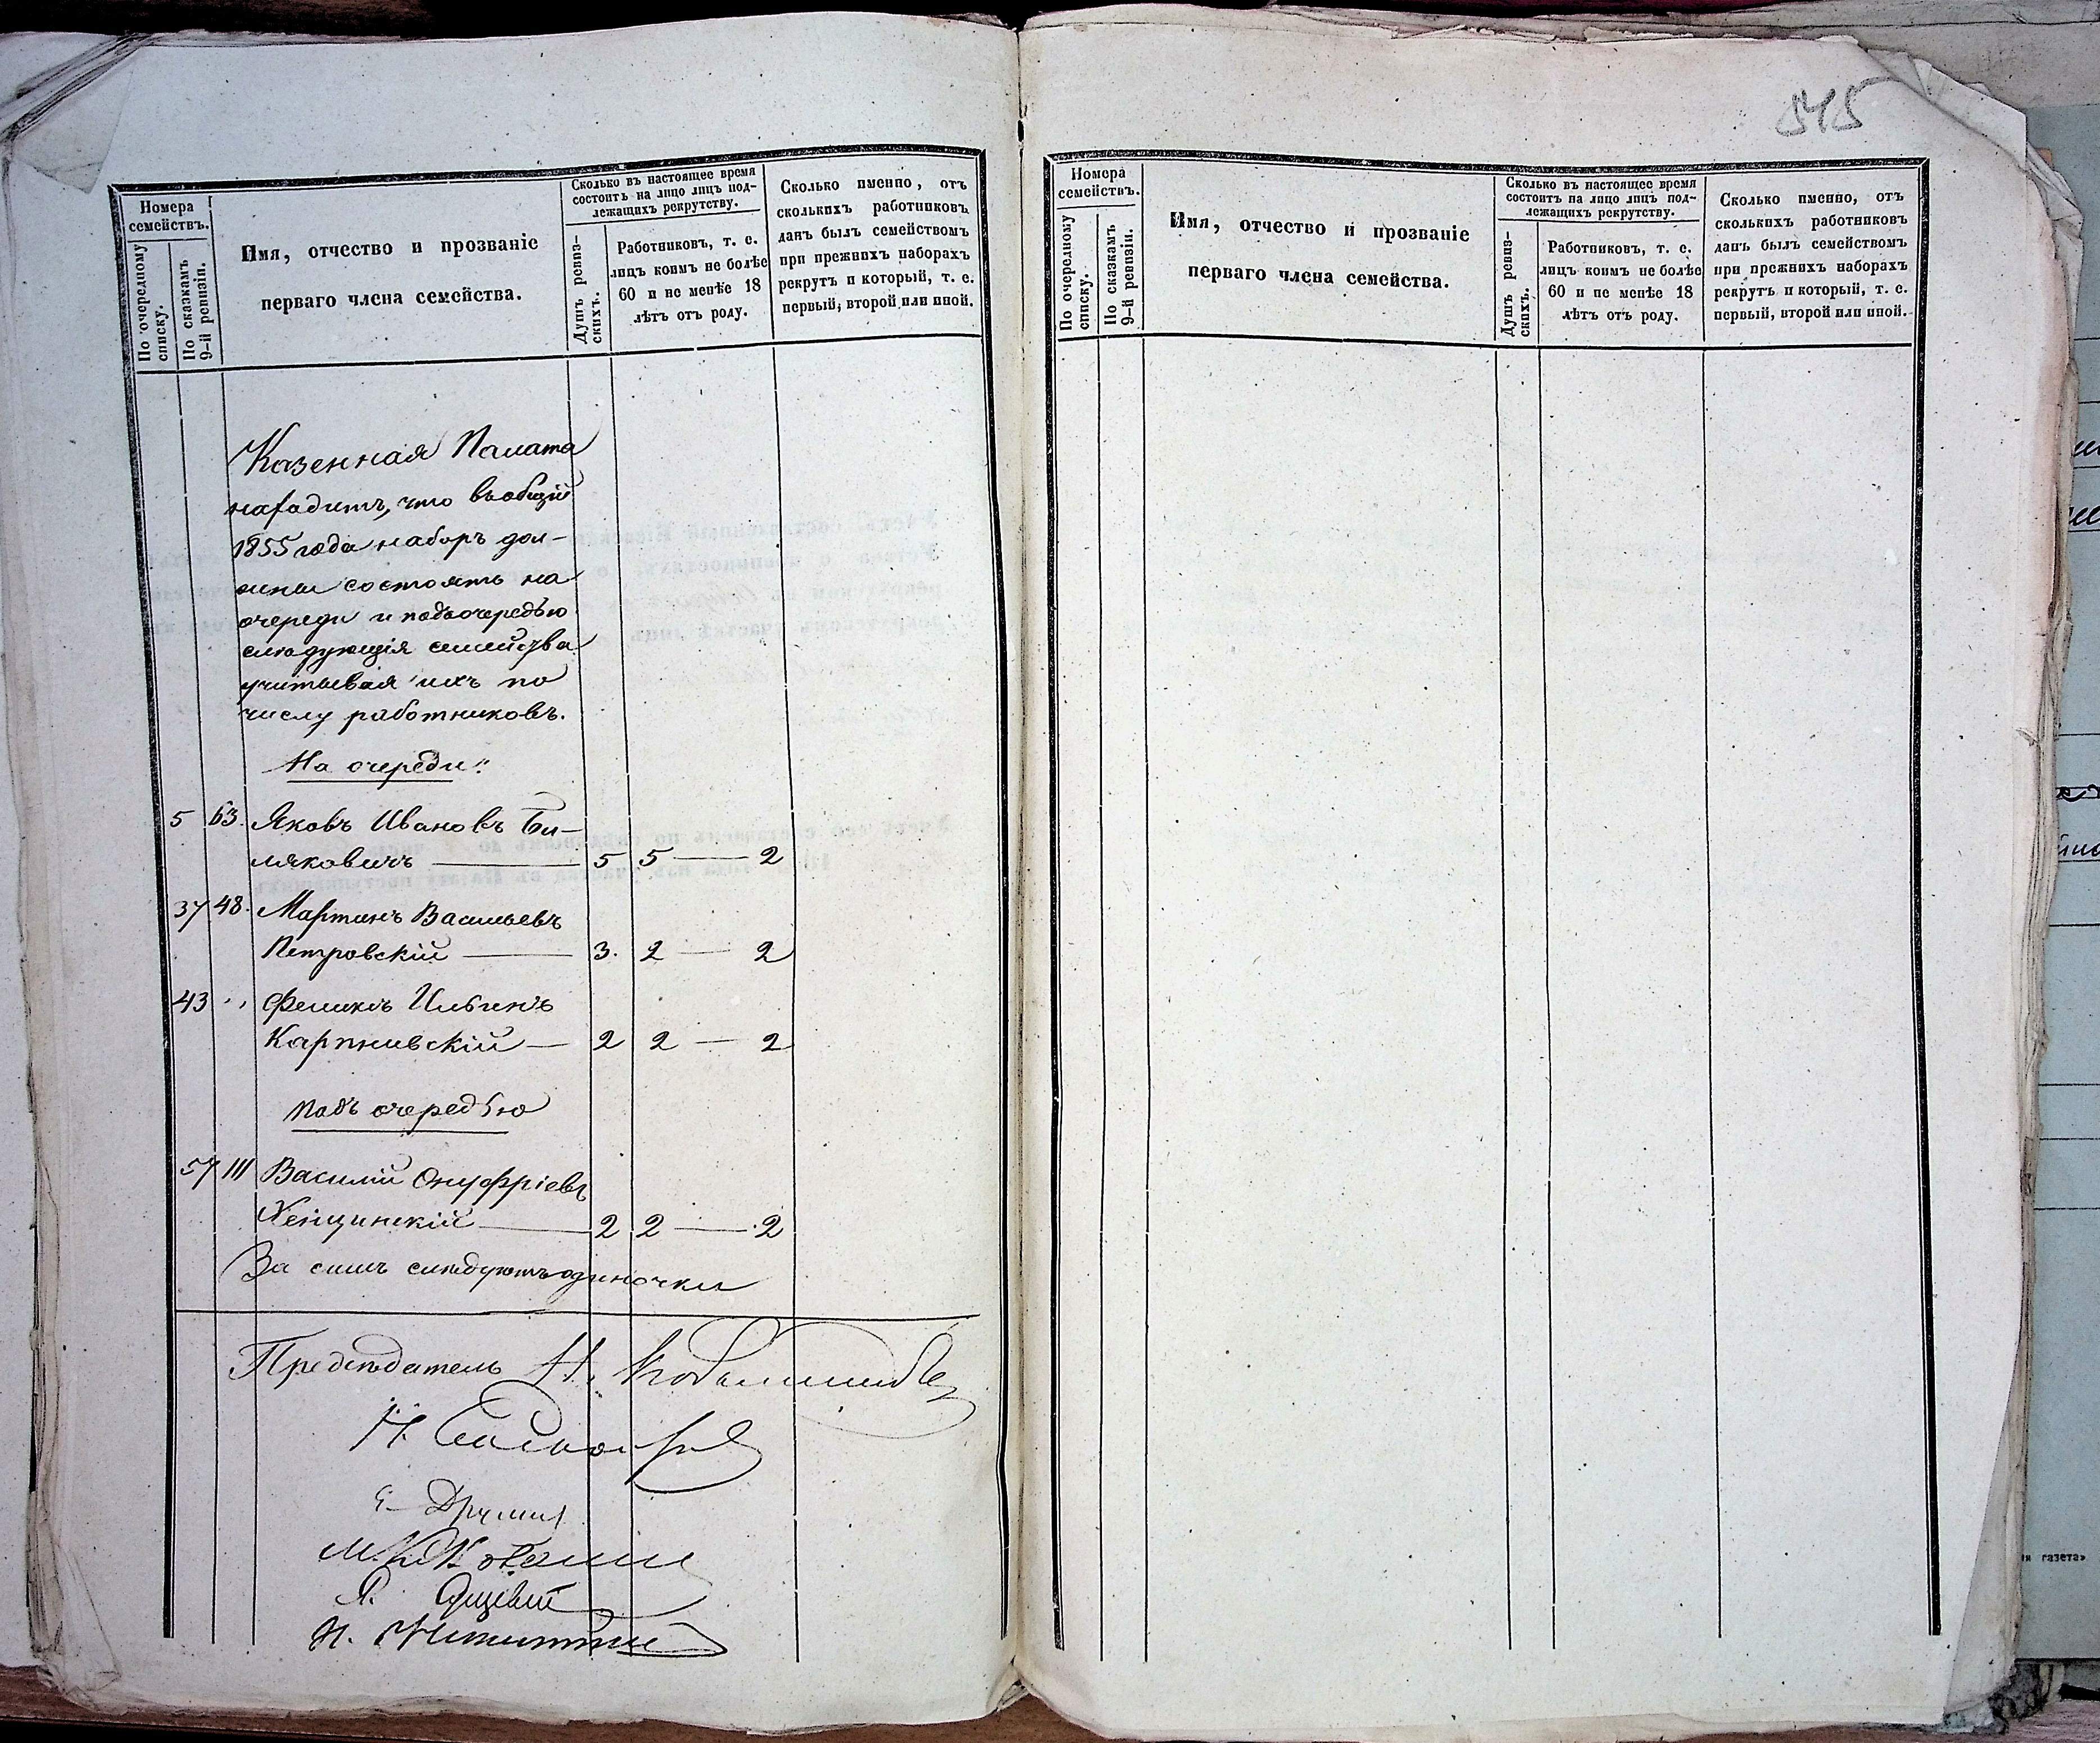 545
Номера
семействъ.
По очередному
списку.
По сказкамъ
9-й ревизіи.
Имя, отчество и прозваніе
перваго члена семейства.
Сколько въ настоящее время
состоитъ на лицо лицъ под-
лежащихъ рекрутству.
Душъ ревиз-
скихъ.
Работниковъ, т. е.
лицъ коимъ не болѣе
60 и не менѣе 18
лѣтъ отъ роду.
Сколько именно, отъ
сколькихъ работниковъ
данъ былъ семействомъ
при прежнихъ наборахъ
рекрутъ и который, т. е.
первый, второй или иной.
Казенная Палата
находитъ, что въ общій
1855 года наборъ дол-
жны состоять на
очереди и подъочередью
слѣдующія семейства
учитывая ихъ по
числу работниковъ.
На очереди:
5 63. Яковъ Ивановъ Би-
ляковичъ — 5 5 — 2
37 48. Мартинъ Васильевъ
Петровскій — 3. 2 — 2
43 " Феликсъ Ильинъ
Карпиевскій — 2 2 — 2
подъ очередью
57 111 Василій Онуфріевъ
Хенцинскій — 2 2 — 2
За симъ слѣдуютъ одиночки
Предсѣдатель Н.
Н.
Е.
М.
Я.
Н.
Номера
семействъ.
По очередному
списку.
По сказкамъ
9-й ревизіи.
Имя, отчество и прозваніе
перваго члена семейства.
Сколько въ настоящее время
состоитъ на лицо лицъ под-
лежащихъ рекрутству.
Душъ ревиз-
скихъ.
Работниковъ, т. е.
лицъ коимъ не болѣе
60 и не менѣе 18
лѣтъ отъ роду.
Сколько именно, отъ
сколькихъ работниковъ
данъ былъ семействомъ
при прежнихъ наборахъ
рекрутъ и который, т. е.
первый, второй или иной.
газета»